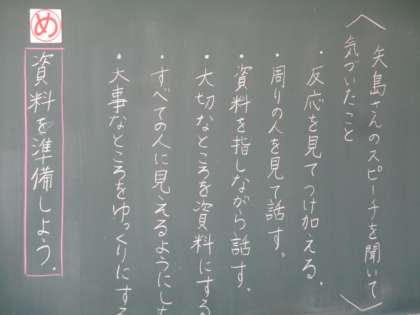 〈矢島さんのスピーチを聞いて
気づいたこと〉
・反応を見てつけ加える。
・周りの人を見て話す。
・資料を指しながら話す。
・大切なところを資料にする
・すべての人に見えるようにした
・大事なところをゆっくりにする
め
資料を準備しよう。